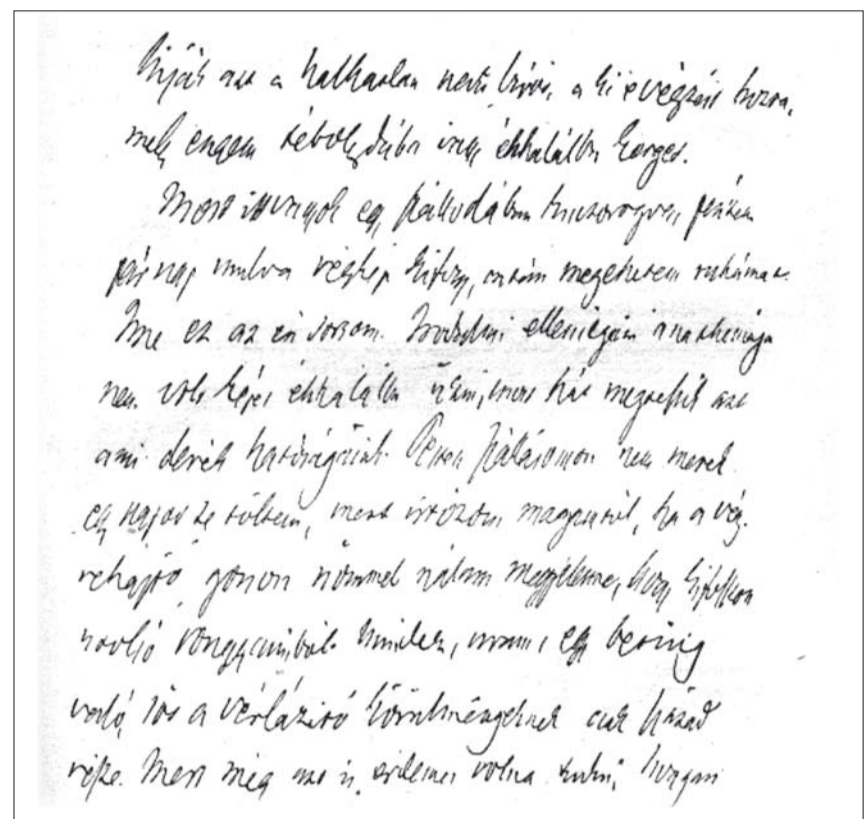 hiják azt a halhatlan nevű bírót, a ki e végzést hozta,
mely engem tébolydába vagy éhhalálba kerget.
Most itt vagyok egy szállodában nyomorogva, pénzem
pár nap mulva végkép kifogy, aztán megehetem ruhámat.
Ime ez az én sorsom. Irodalmi ellenségeim anathemája
nem volt képes éhhalálba űzni, mert hát megtették azt
a mi derék hatóságaink. Pesten lakásomon nem merek
egy napot se tölteni, mert irtózom magamtól, ha a vég-
rehajtó gonosz nőmmel nálam megjelenne, hogy kifosszon
utolsó rongyaimból. Mindez, uram, egy betűig
való, sőt a vérlázító körülményeknek csak század
része. Mert még azt is érdemes volna tudni, hogyan